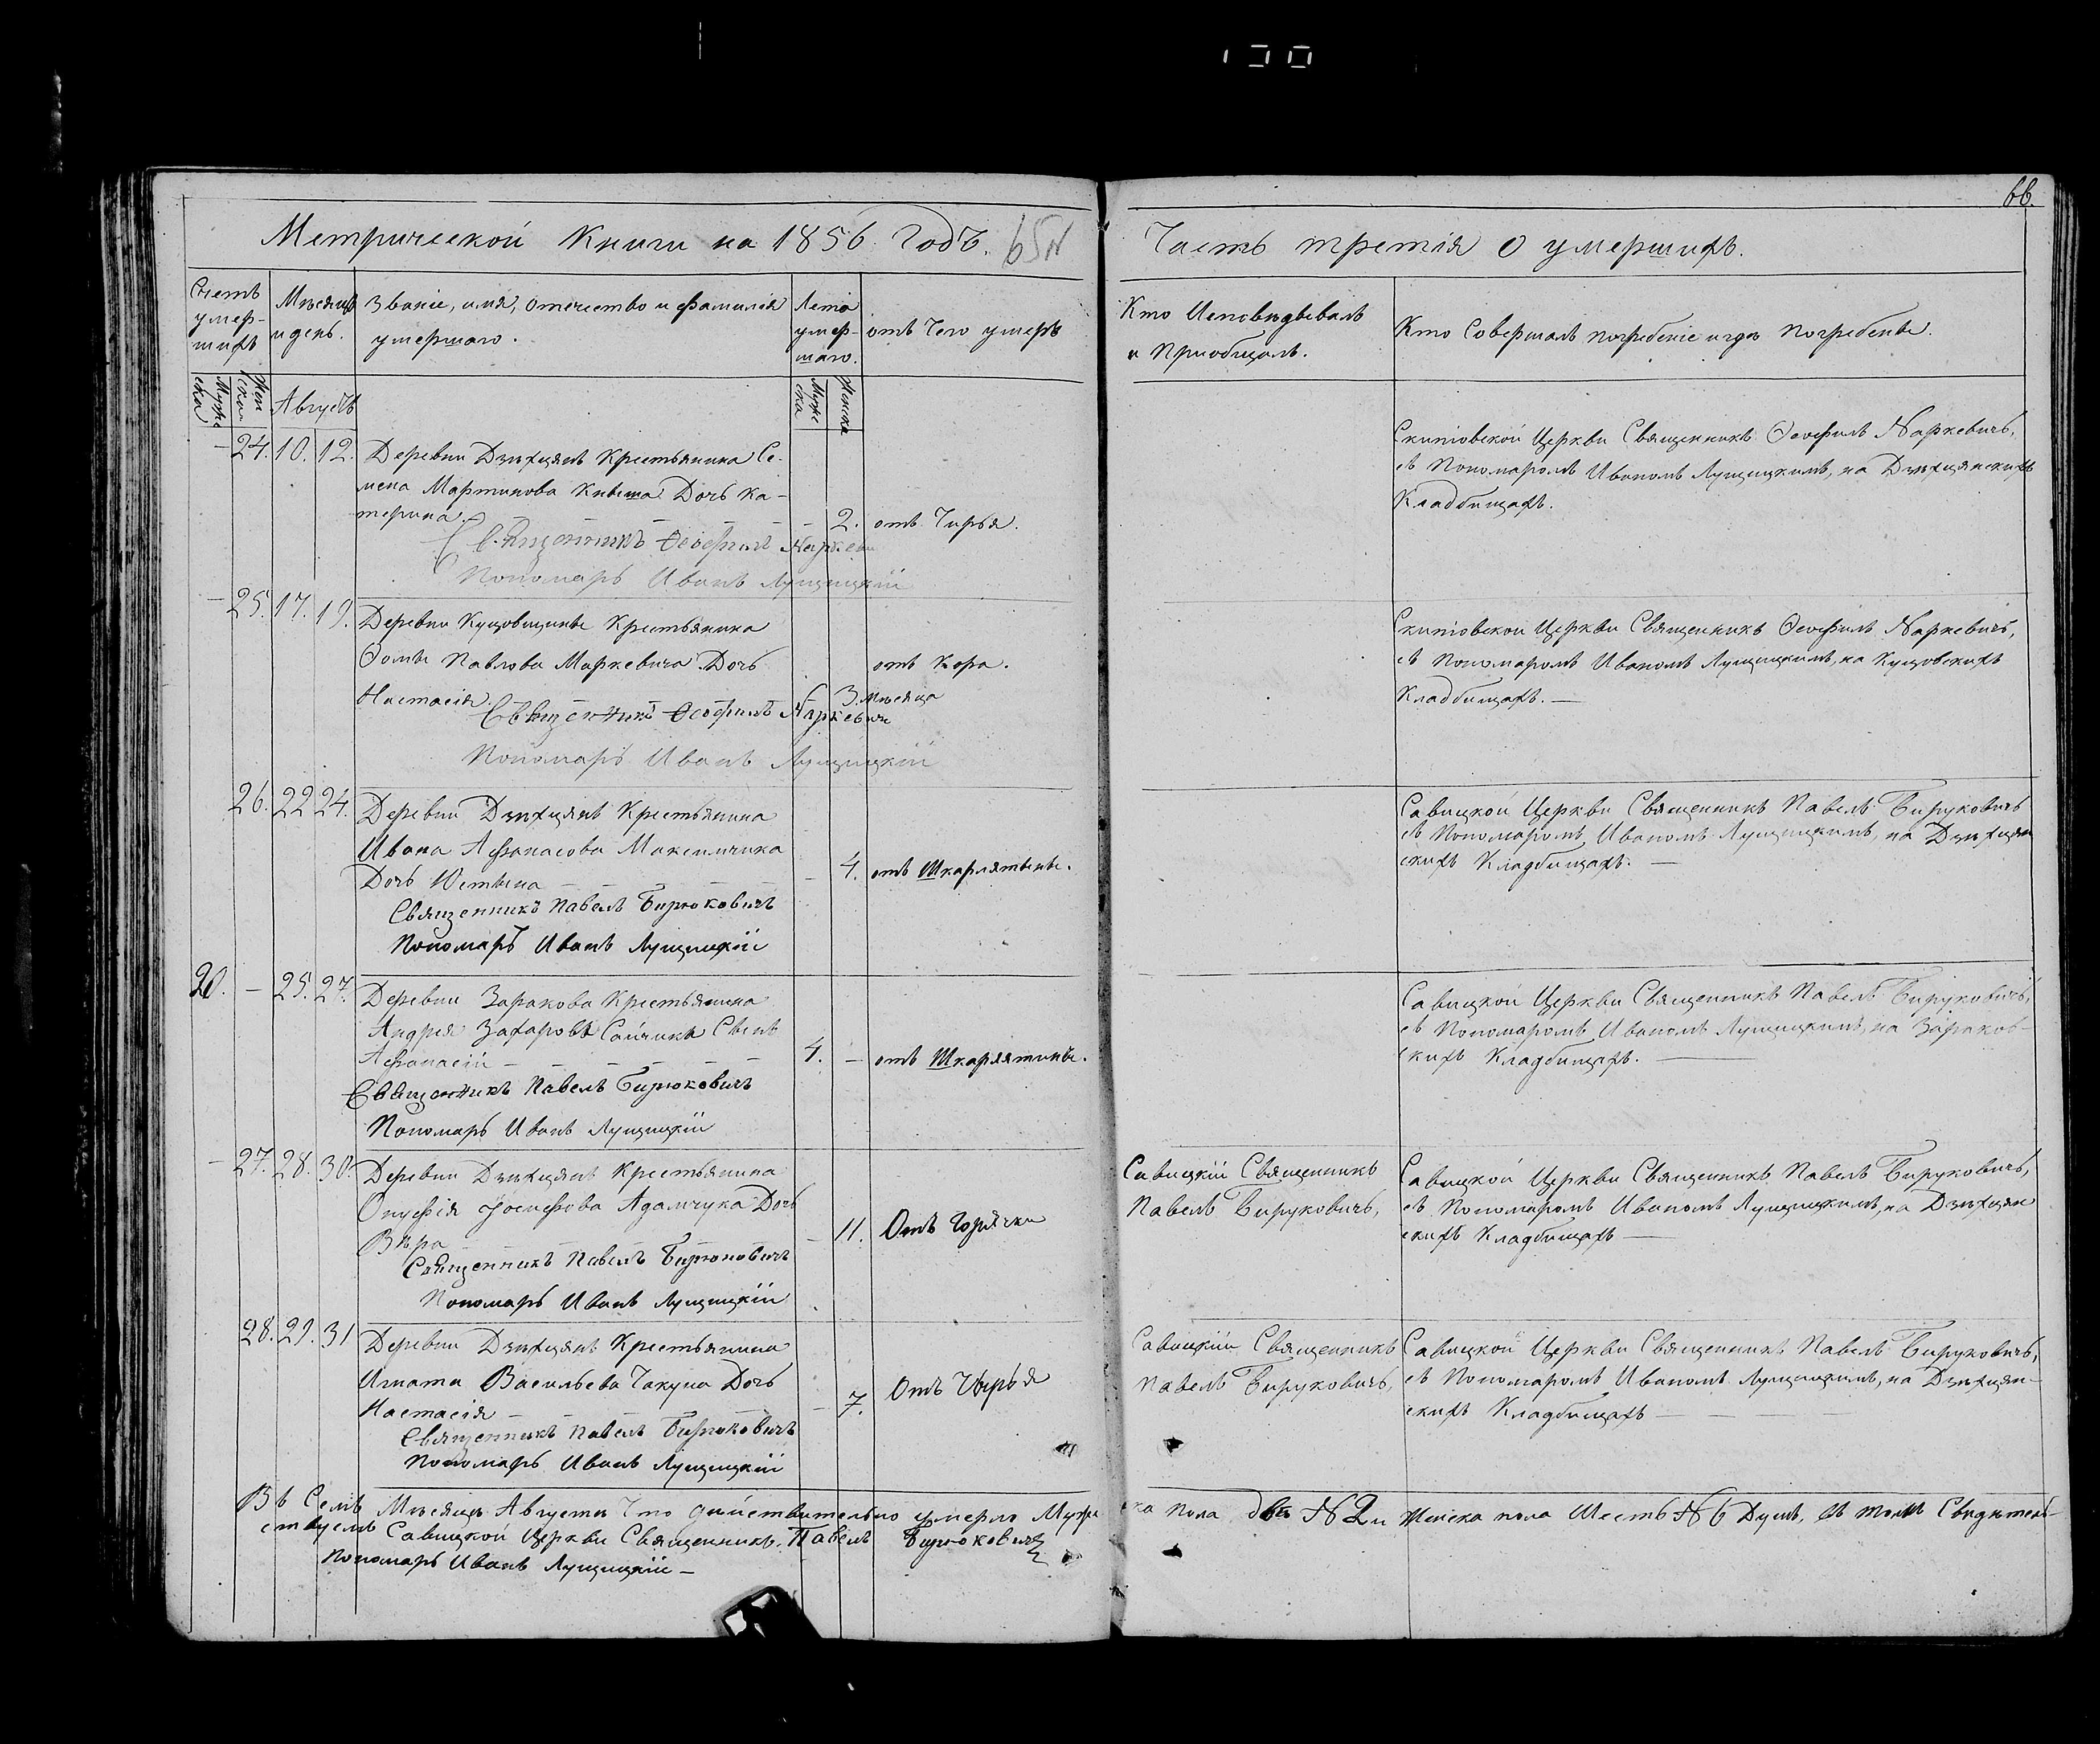 66.
Метрической Книги на 1856 Годъ. 65
Часть третія о умершихъ.
Счетъ умер-шихъ
Мѣсяцъ и день.
Званіе, имя, отчество и фамилія умершаго.
Лета умер-шаго.
отъ Чего умеръ
Кто Исповѣдывалъ и Пріобщалъ.
Кто Совершалъ погребеніе и гдѣ погребены.
Мужеска
Женска
Августъ
Мужеска
Женска
– 24. 10. 12. Деревни Дзѣхцянъ Крестьянина Се-
мена Мартинова Дочь Ка-
терина – 2. отъ Чирья.
Священникъ Ѳеофилъ Наркевич
Пономарь Иванъ Лущицкій
Скиповской Церкви Священникъ Ѳеофилъ Наркевичъ,
съ Пономаромъ Иваномъ Лущицкимъ, на Дзѣхцянскихъ
Кладбищахъ.
– 25. 17. 19. Деревни Куцовщины Крестьянина
Ѳомы Павлова Маркевича Дочь
Настасія 3. мѣсяца отъ Кора.
Священникъ Ѳеофилъ Наркевичъ
Пономарь Иванъ Лущицкій
Скиповской Церкви Священникъ Ѳеофилъ Наркевичъ,
съ Пономаромъ Иваномъ Лущицкимъ, на Куцовскихъ
Кладбищахъ. —
26. 22 24. Деревни Дзѣхцянъ Крестьянина
Ивана Афанасова Максимчика
Дочь Юстына – 4. отъ Шкарлятыны.
Священникъ Павелъ Бирюковичъ
Пономарь Иванъ Лущицкій
Савицкой Церкви Священникъ Павелъ Бируковичъ
съ Пономаромъ Иваномъ Лущицкимъ, на Дзѣхцян
скихъ Кладбищахъ. —
20. – 25. 27. Деревни Заракова Крестьянина
Андрея Захарова Сайчика Сынъ
Афанасій – 4. – отъ Шкарлятины.
Священникъ Павелъ Бирюковичъ
Пономарь Иванъ Лущицкій
Савицкой Церкви Священникъ Павелъ Бируковичъ,
съ Пономаромъ Иваномъ Лущицкимъ, на Зараков-
скихъ Кладбищахъ. —
– 27. 28. 30. Деревни Дзѣхцянъ Крестьянина
Онуфрія Іосифова Адамчука Дочь
Вѣра – 11. Отъ Горячки
Священникъ Павелъ Бирюковичъ
Пономарь Иванъ Лущицкій
Савицкій Священникъ
Павелъ Бируковичъ,
Савицкой Церкви Священникъ Павелъ Бируковичъ,
съ Пономаромъ Иваномъ Лущицкимъ, на Дзѣхцян
скихъ Кладбищахъ —
28. 29. 31 Деревни Дзѣхцянъ Крестьянина
Игната Васильева Чакуна Дочь
Настасія – 7. Отъ Чырья
Священникъ Павелъ Бирюковичъ
Пономарь Иванъ Лущицкій
Савицкій Священникъ
Павелъ Бируковичъ,
Савицкой Церкви Священникъ Павелъ Бируковичъ,
съ Пономаромъ Иваномъ Лущицкимъ, на Дзѣхцян-
скихъ Кладбищахъ —
Въ Семъ Мѣсяцѣ Августѣ Что дѣйствительно умерло Мужеска пола два № 2 и Женска пола Шесть № 6 Душъ, въ томъ Свидѣтель-
ствуемъ Савицкой Церкви Священникъ Павелъ Бирюковичъ
Пономарь Иванъ Лущицкій –